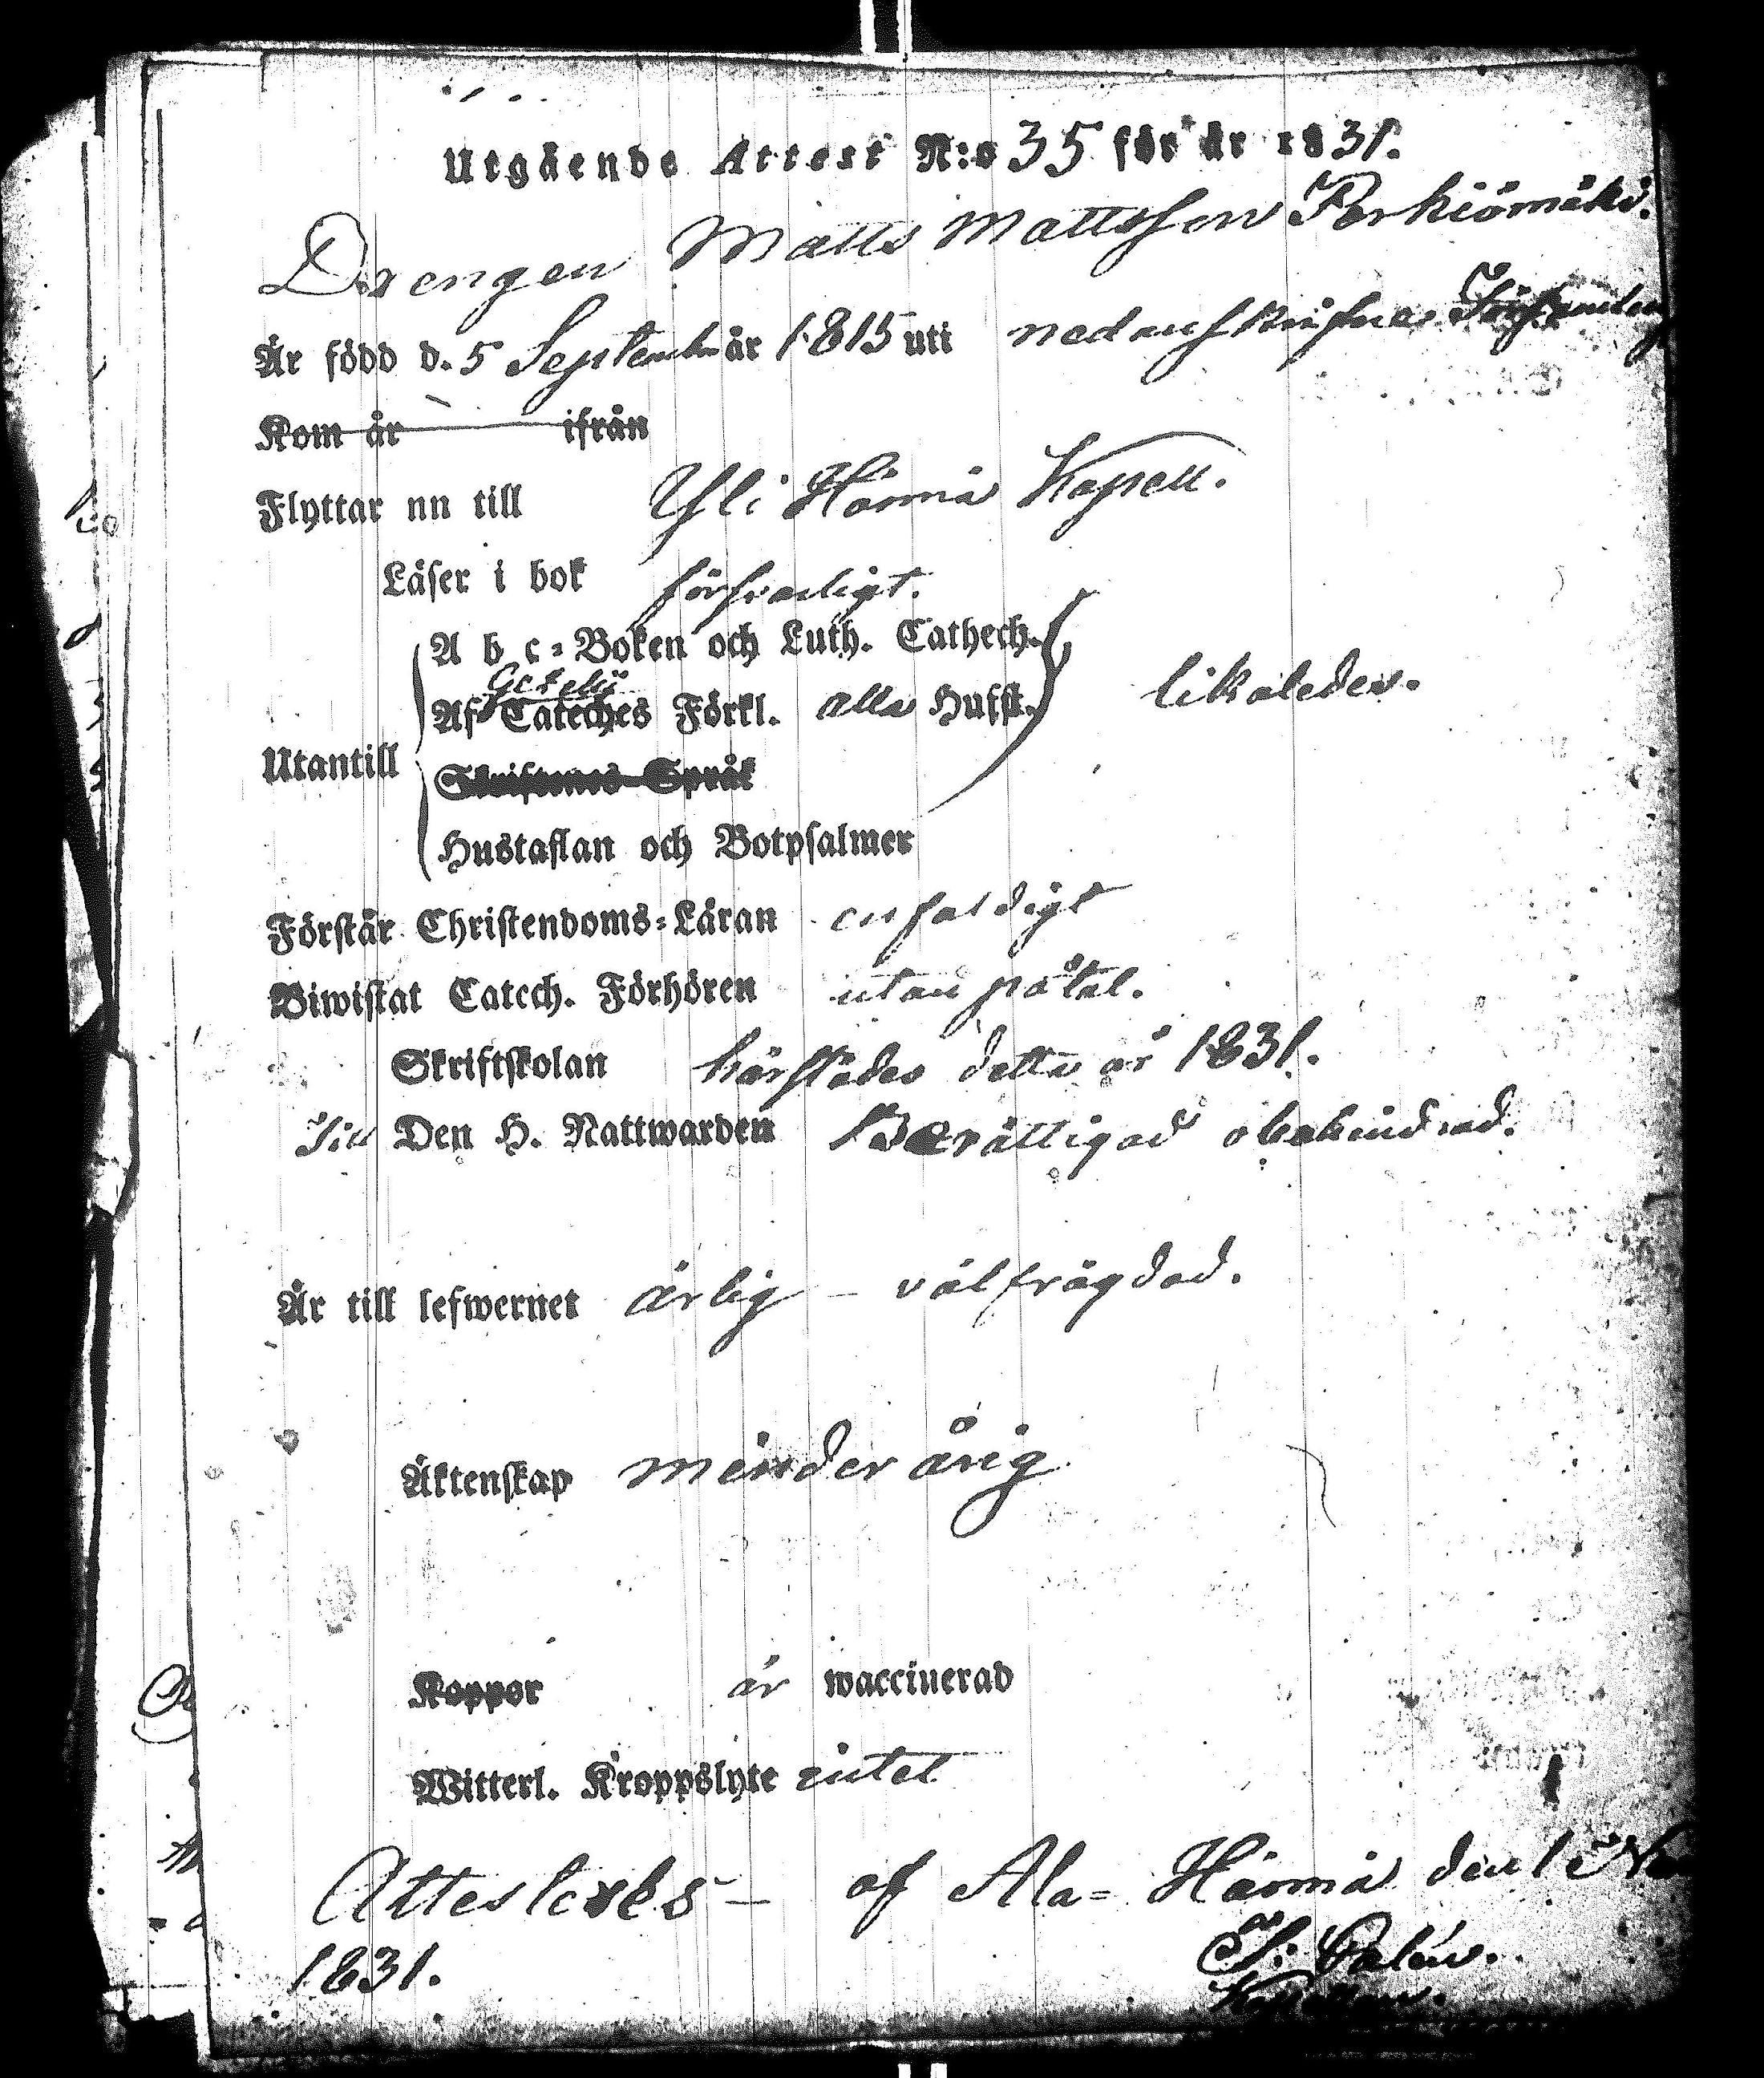 Utgående Attest N:o 35 för år 1831.
Drengen Matts Mattsson Perkiömäki.
Är född d. 5 September år 1815 uti nedanskrifne
Kom år ifrån
Flyttar nu till Yli Härmä Kapell.
Läser i bok försvarligt.
A b c-Boken och Luth. Cathech.
Gezelii
Af Cateches Förkl. alla Hufst. likaledes.
Utantill
Skriftenes Språk
Hustaflan och Botpsalmer
Förstår Christendoms-Läran enfaldigt
Biwistat Catech. Förhören utan påtal.
Skriftskolan härstädes detta år 1831.
Till Den H. Nattwarden Berättigad obehindrad.
Är till lefwernet ärlig – välfrägdad.
Äktenskap minderårig
Koppor är waccinerad
Witterl. Kroppslyte intet
Attesteras – af Ala-Härmä den 1
1831.